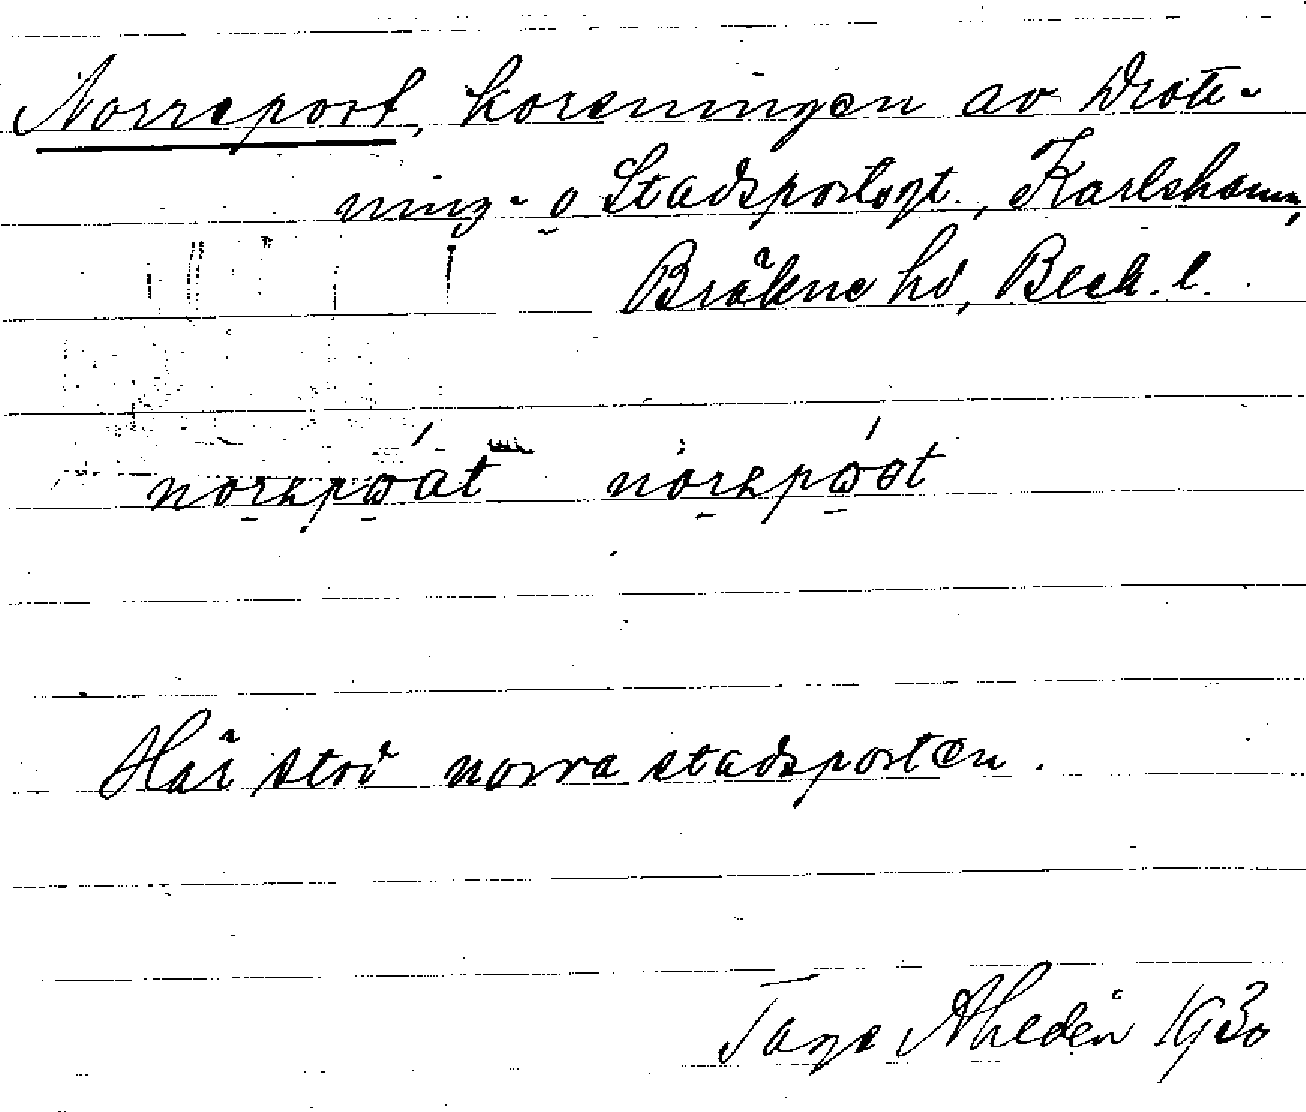 Norreport, korsningen av Drott-
ning- o Stadsportsgt., Karlshamn,
Bräkne hd, Blek. l.
norrepoat norrepoat
Här stod norra stadsporten.
Tage Ahldén 1930